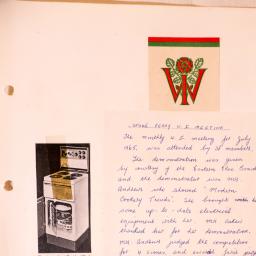 W I
STOKE FERRY W.I MEETING
The monthly W.I meeting for July
1965, was attended by 31 members.
The demonstration was given
by courtesy of the Eastern Elec Board
and the demonstrator was Mrs
Andrews who showed 'Modern
Cookery Trends'. She brought with her
some up-to-date electrical
equipment with her. Mrs
thanked her for her demonstration.
Mrs Andrews judged the competition
for